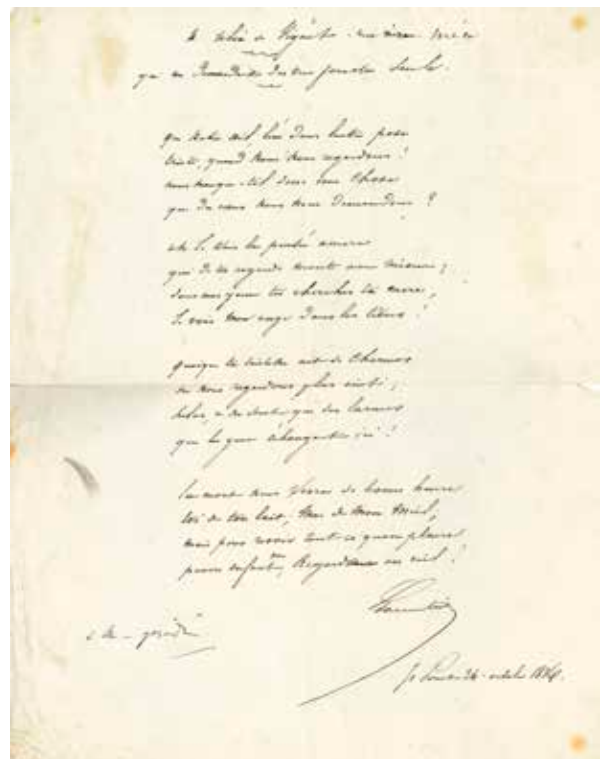 que notre oeil, l'un dans l'autre pose
triste, quand nous nous regardons !
nous manque-t-il donc une chose
que du nous nous demandons ?
ah je sais la pensée amère
qui de tes regards monte aux miens ;
dans mes yeux tu cherches ta mère,
je vois mon ange dans les tiens !
quoique ta tristesse ait de charmes
ne nous regardons plus ainsi ;
hélas, ce ne sont que des larmes
que les yeux échangent ici !
la mort nous sevra de bonne heure
toi de ton lait, moi de mon miel,
mais pour revoir tout ce qu'on pleure
pauvre enfant, regardons au ciel !
Lamartine
St Point octobre